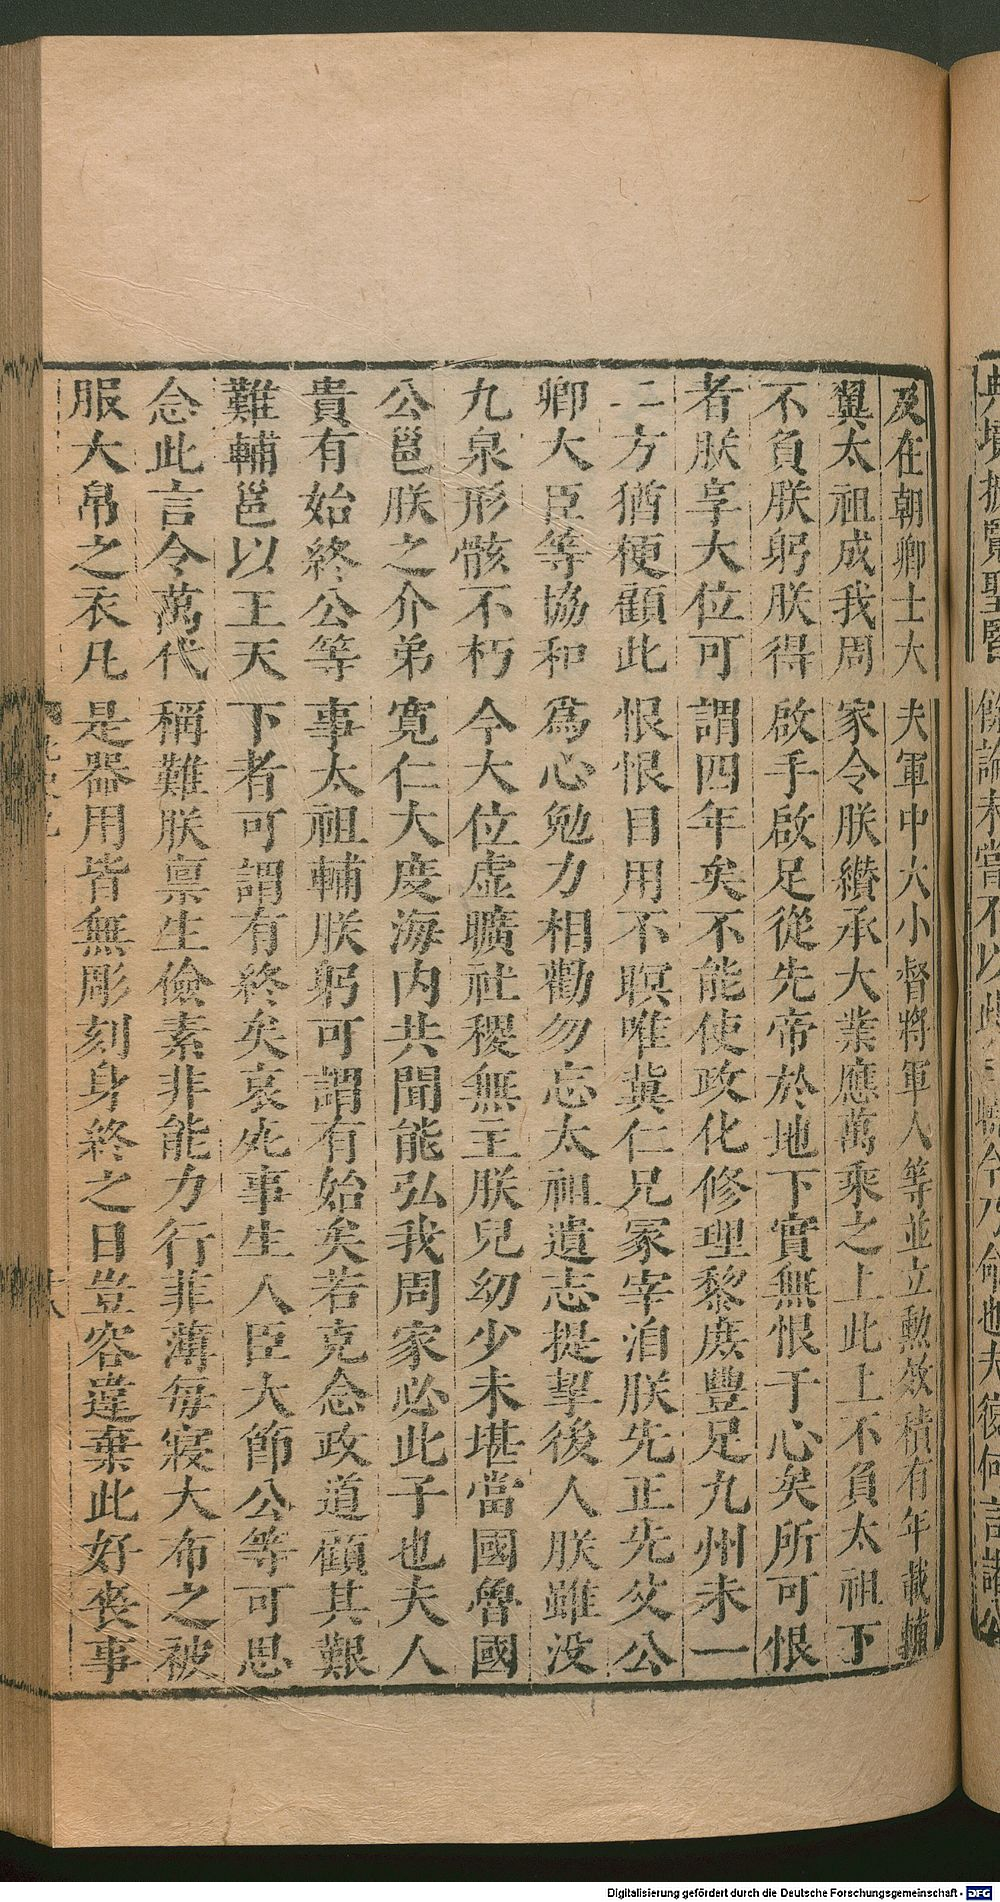 及在朝卿士大夫軍中大小督將軍人等並立勳效積有年載輔
翼太祖成我周家今朕纉承大業應萬乘之上此上不負太祖下
不負朕躬朕得啟手啟足從先帝於地下實無恨于心矣所可恨
者朕享大位可謂四年矣不能使政化修理黎庶豐足九州未一
二方猶梗顧此恨恨目用不瞑唯冀仁兄冢宰洎朕先正先父公
卿大臣等協和爲心勉力相勸勿忘太祖遺志提挈後人朕雖没
九泉形骸不朽今大位虛曠社稷無主朕兒幼少未堪當國魯國
公邕朕之介弟寛仁大度海内共聞能弘我周家必此子也夫人
貴有始終公等事太祖輔朕躬可謂有始矣若克念政道顧其艱
難輔邕以王天下者可謂有終矣哀死事生人臣大節公等可思
念此言令萬代稱難朕禀生儉素非能力行菲薄每寢大布之被
服大帛之衣凡是器用皆無彫刻身終之日豈容違棄此好喪事
Digitalisierung gefördert durch die Deutsche Forschungsgemeinschaft - DFG